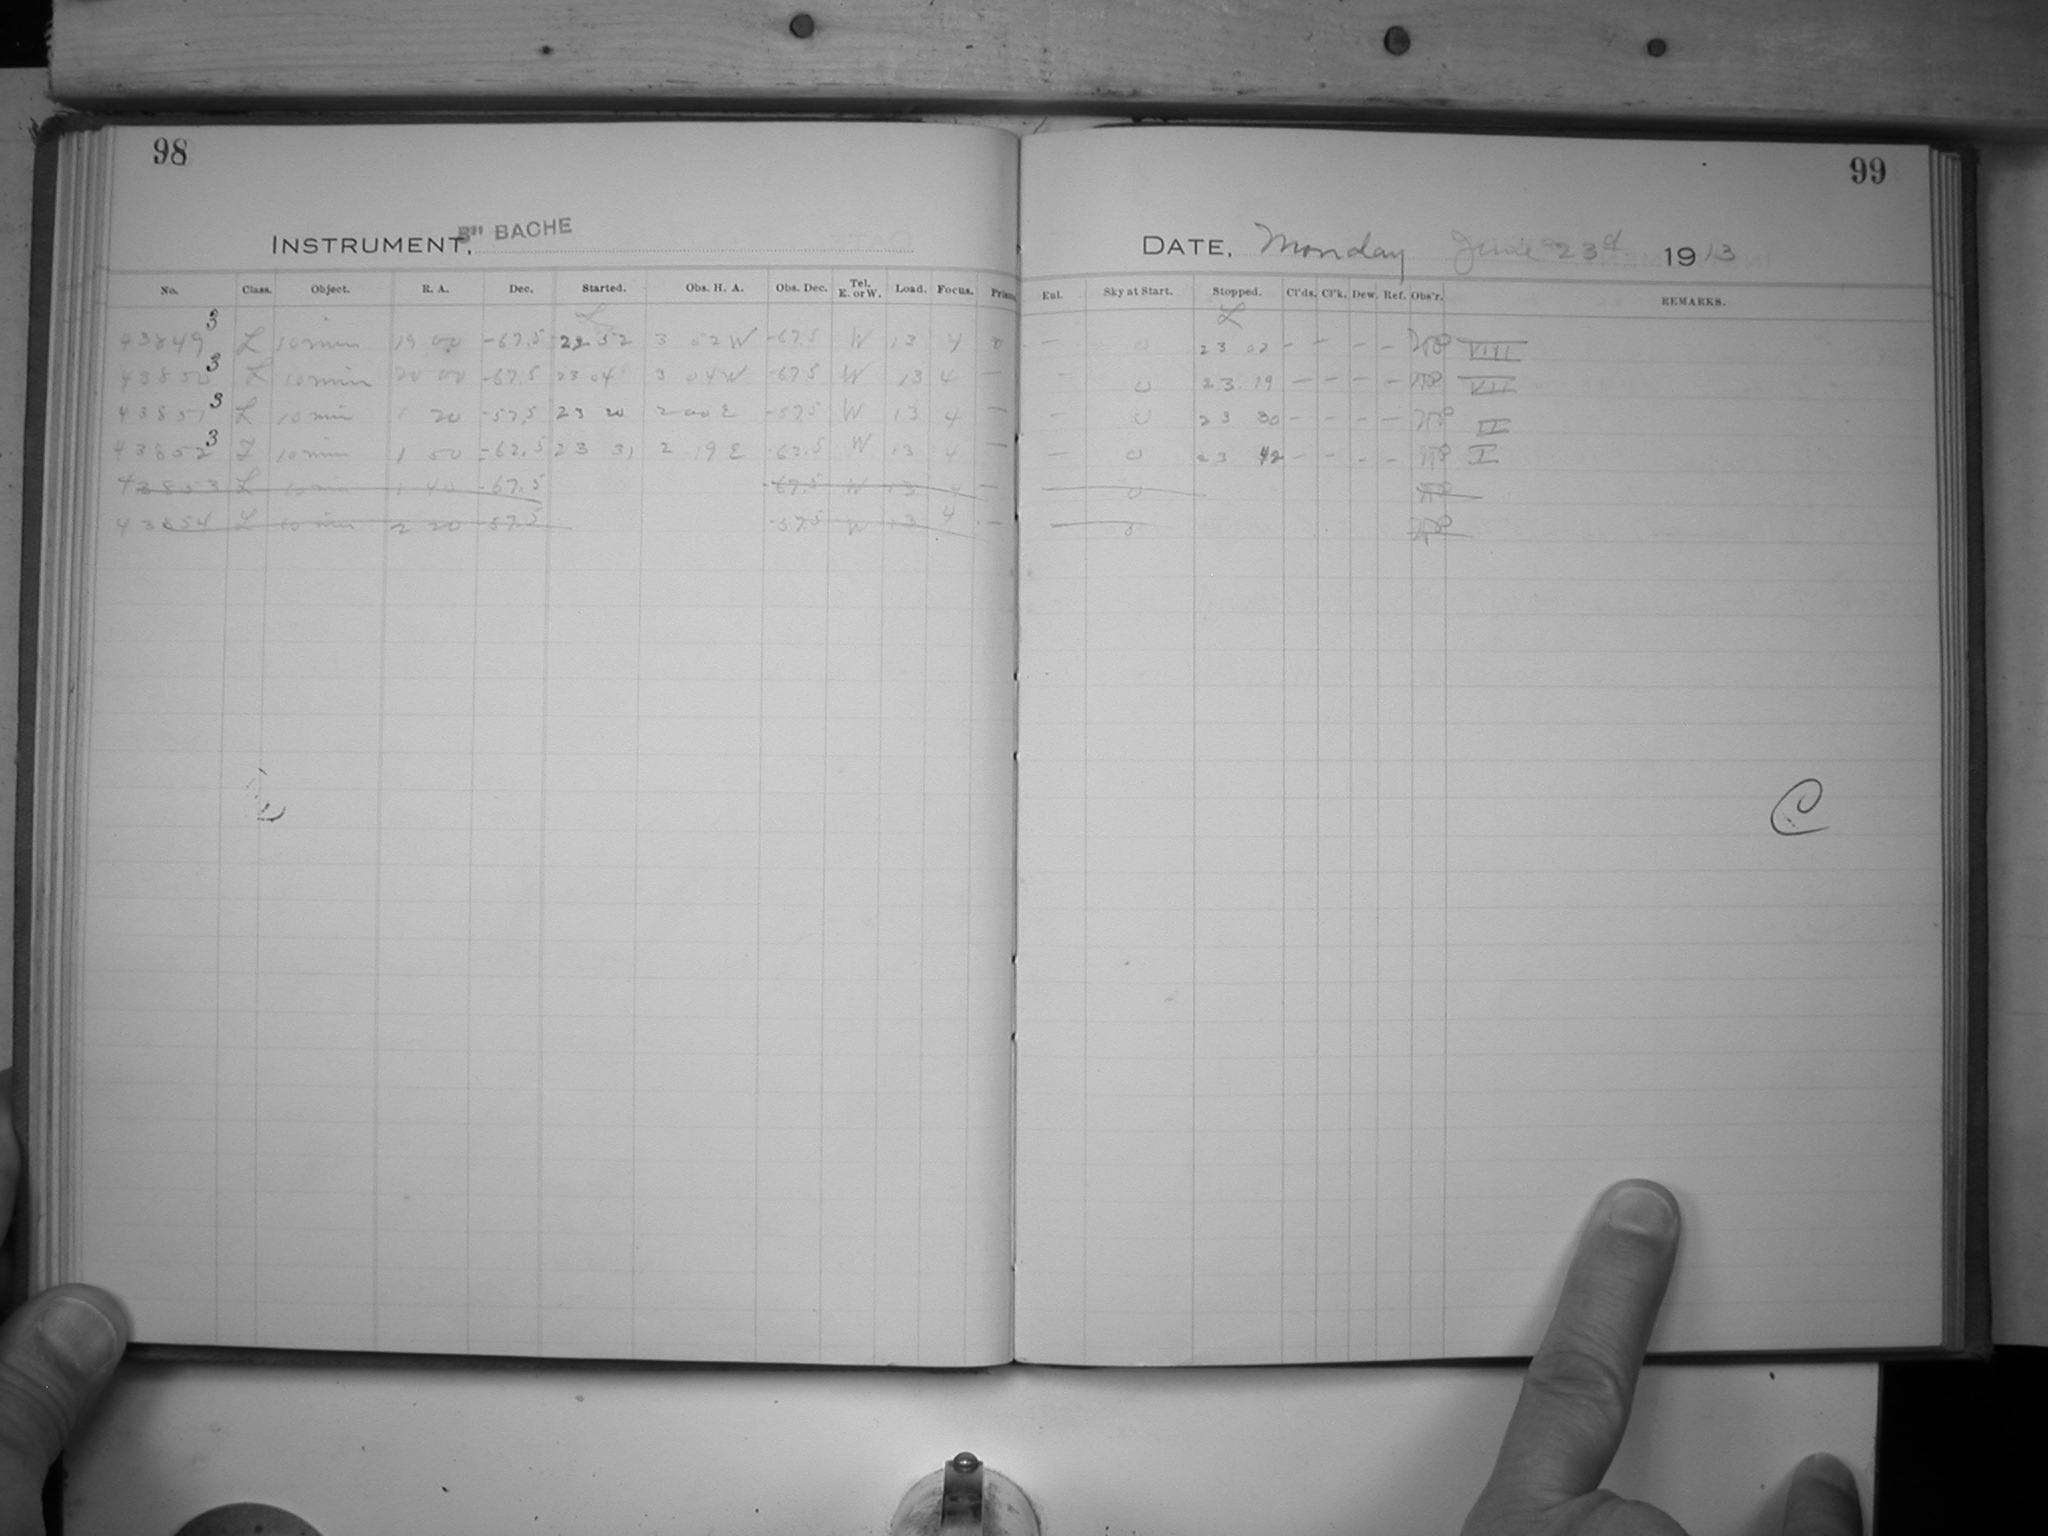 98
INSTRUMENT, 8" BACHE
No. Class. Object. R. A. Dec. Started. Obs. H. A. Obs. Dec. Tel. E. or W. Load. Focus. Prism
L
43849 3 L 10 min 19 00 -67.5 22 52 3 52 W -67.5 W 13 4 0
43850 3 L 10 min 20 00 -67.5 23 04 3 04 W -67.5 W 13 4 —
43851 3 L 10 min 1 20 -57.5 23 20 2 00 E -57.5 W 13 4 —
43852 3 L 10 min 1 50 -62.5 23 31 2 19 E -62.5 W 13 4 —
43853 L 10 min 1 40 -67.5 -67.5 W 13 4 —
43854 L 10 min 2 20 -57.5 -57.5 W 13 4 —
99
DATE, Monday June 23d 1913
Eul. Sky at Start. Stopped. Cl'ds. Cl'k. Dew. Ref. Obs'r. REMARKS.
L
— 0 23 02 — — — — VIII
— 0 23 19 — — — — VII
— 0 23 30 — — — — II
— 0 23 42 — — — — I
0
0
C